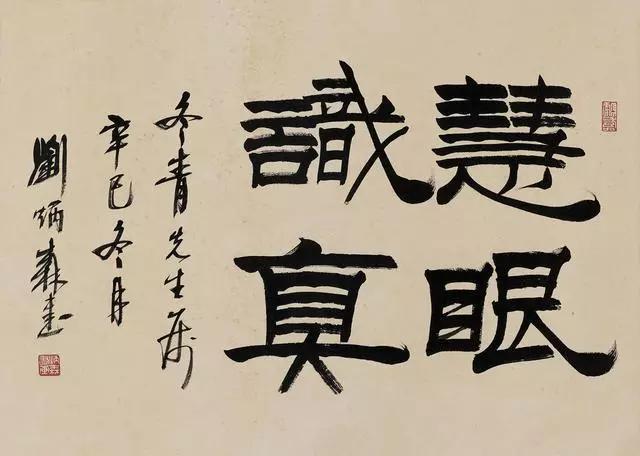 慧眼
識真
冬青先生属
辛巳冬月
劉炳森書